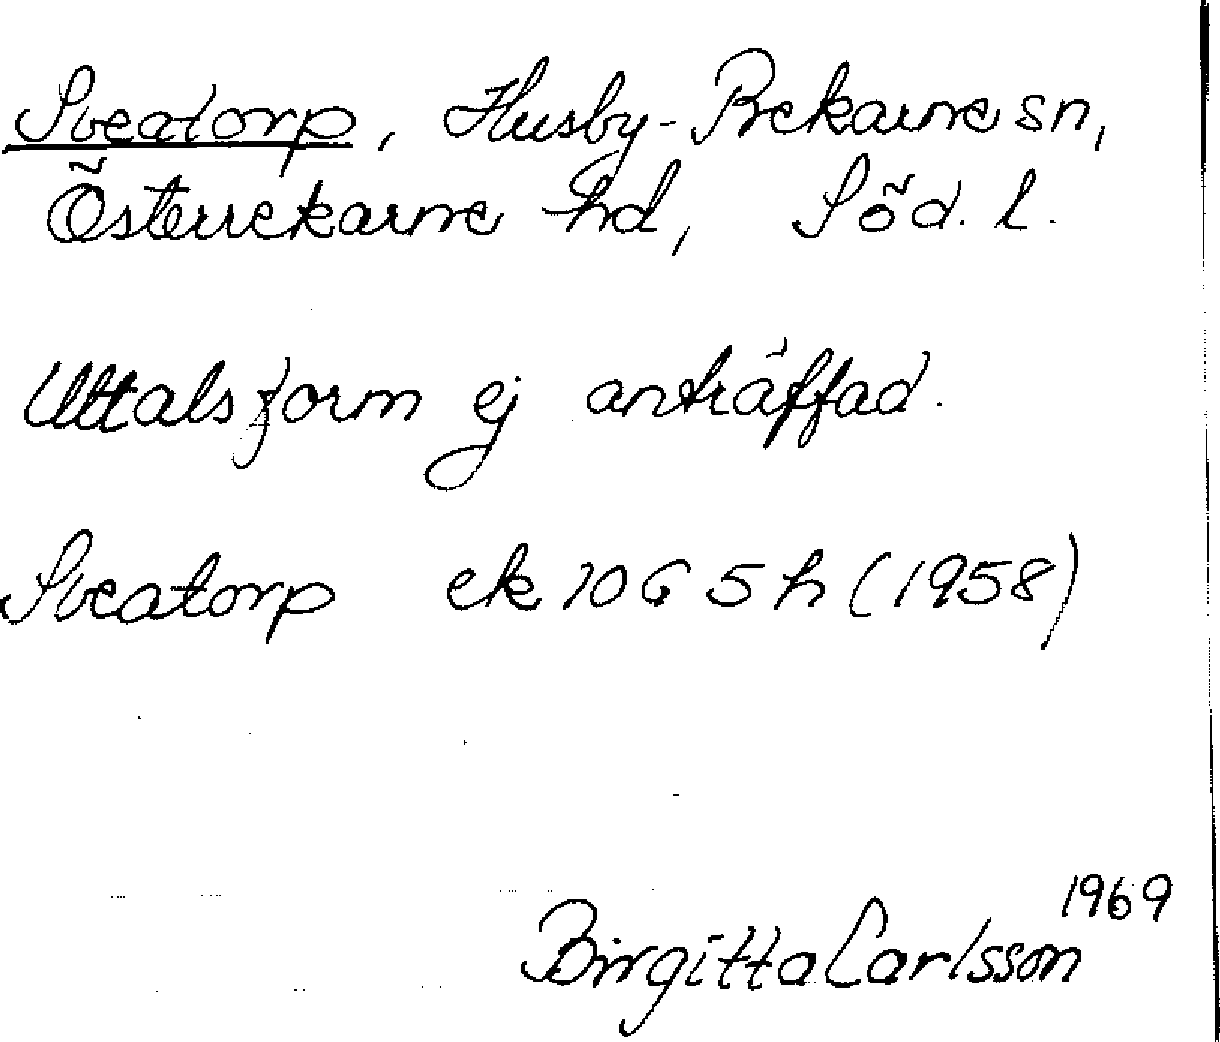 Sveatorp, Husby-Rekarne sn,
Österrekarne hd, Söd. l.
Uttalsform ej anträffad.
Sveatorp ek 10G 5h (1958)
Birgitta Carlsson 1969